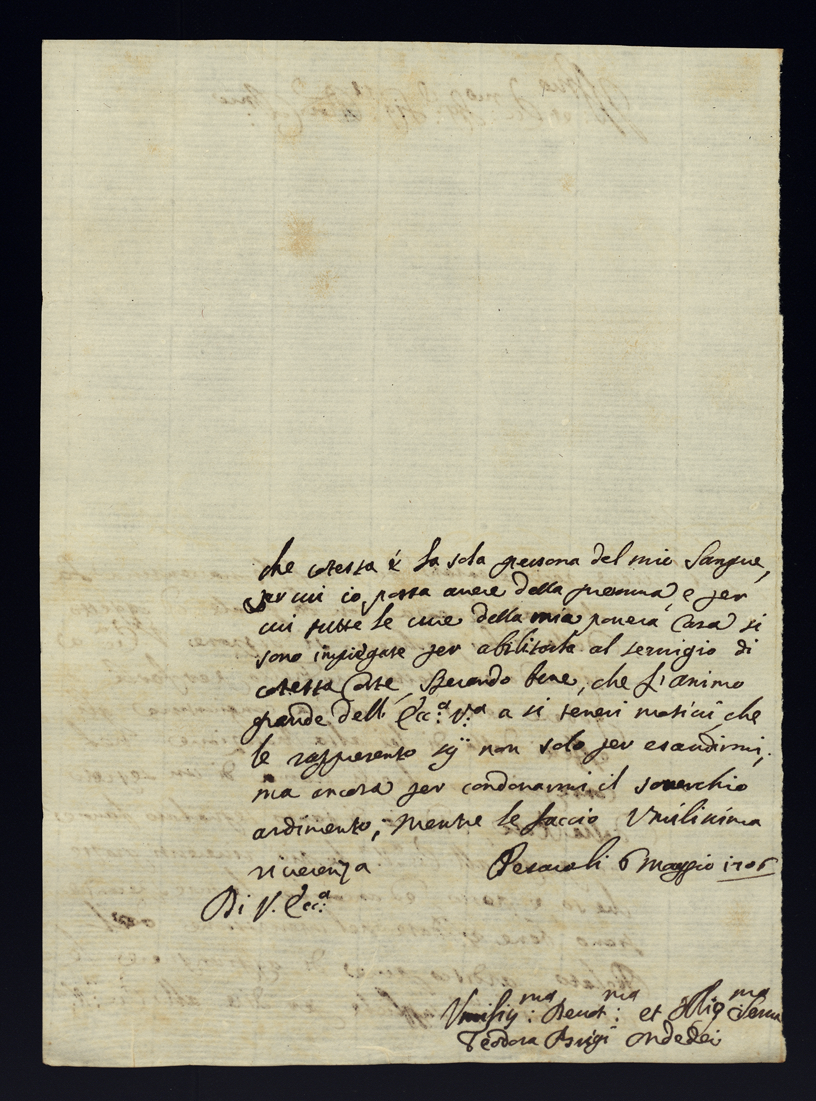 che cotesta è la sola persona del mio Sangue,
per cui io possa avere della premura, e per
cui tutte le cure della mia povera Casa si
sono impiegate per abilitarla al servigio di
cotesta Corte, sperando bene, che l'animo
grande dell' Ecc.a V.a a sì teneri motivi, che
le rappresento sij non solo per esaudirmi,
ma ancora per condonarmi il soverchio
ardimento, mentre le faccio Umilissima
riverenza Pesaro li 6 Maggio 1706
Di V. Ecc.a
Umiliss.ma Devot.ma et Oblig.ma Serva
Teodora Ondedei